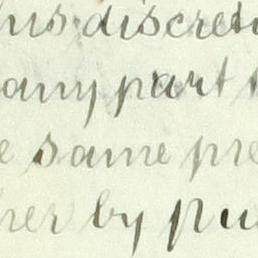 his discreti
any part t
e same pre
her by pu